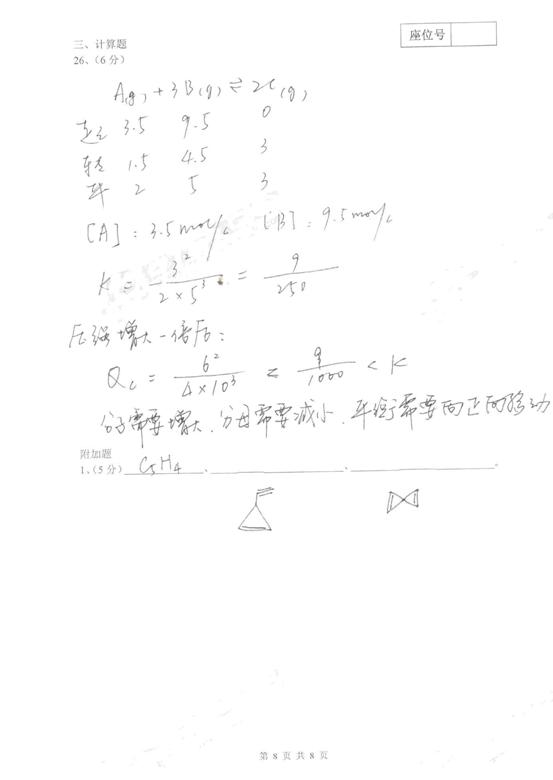 座位号
三、计算题
26、(6分)
A(g) + 3B(g) ⇌ 2C(g)
起始 3.5 9.5 0
转化 1.5 4.5 3
平 2 5 3
[A] : 3.5mol/L [B] : 9.5mol/L
K = 3² / 2×5³ = 9 / 250
压强增大一倍后:
Qc = 6² / 4×10³ = 9 / 1000 < K
分子需要增大,分母需要减小,平衡需要向正向移动
附加题
1、(5分) C₅H₄ 、 、 .
第 8 页 共 8 页